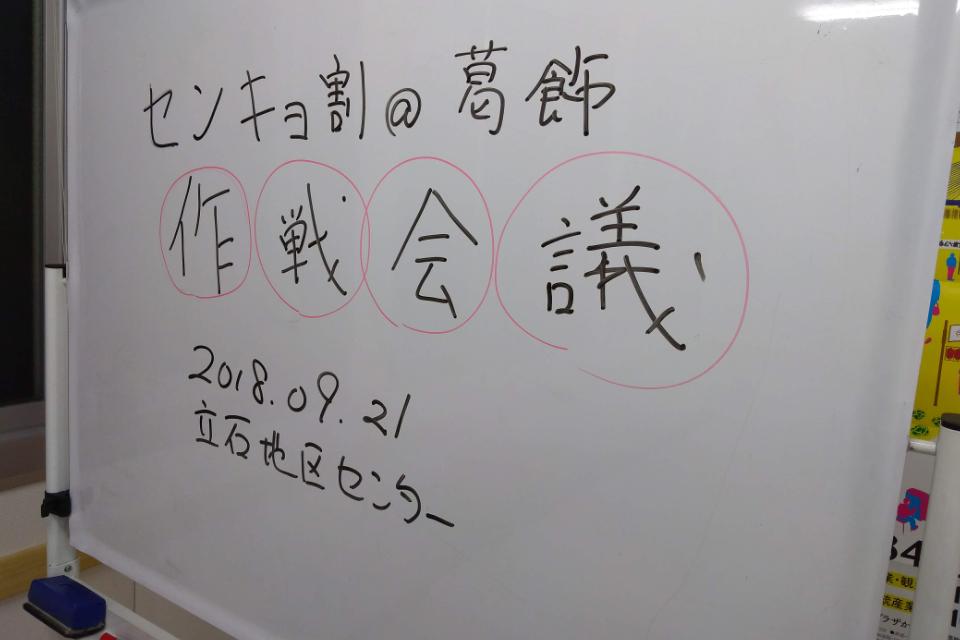 センキョ割@葛飾
作戦会議
2018.09.21
立石地区センター
34
業・観